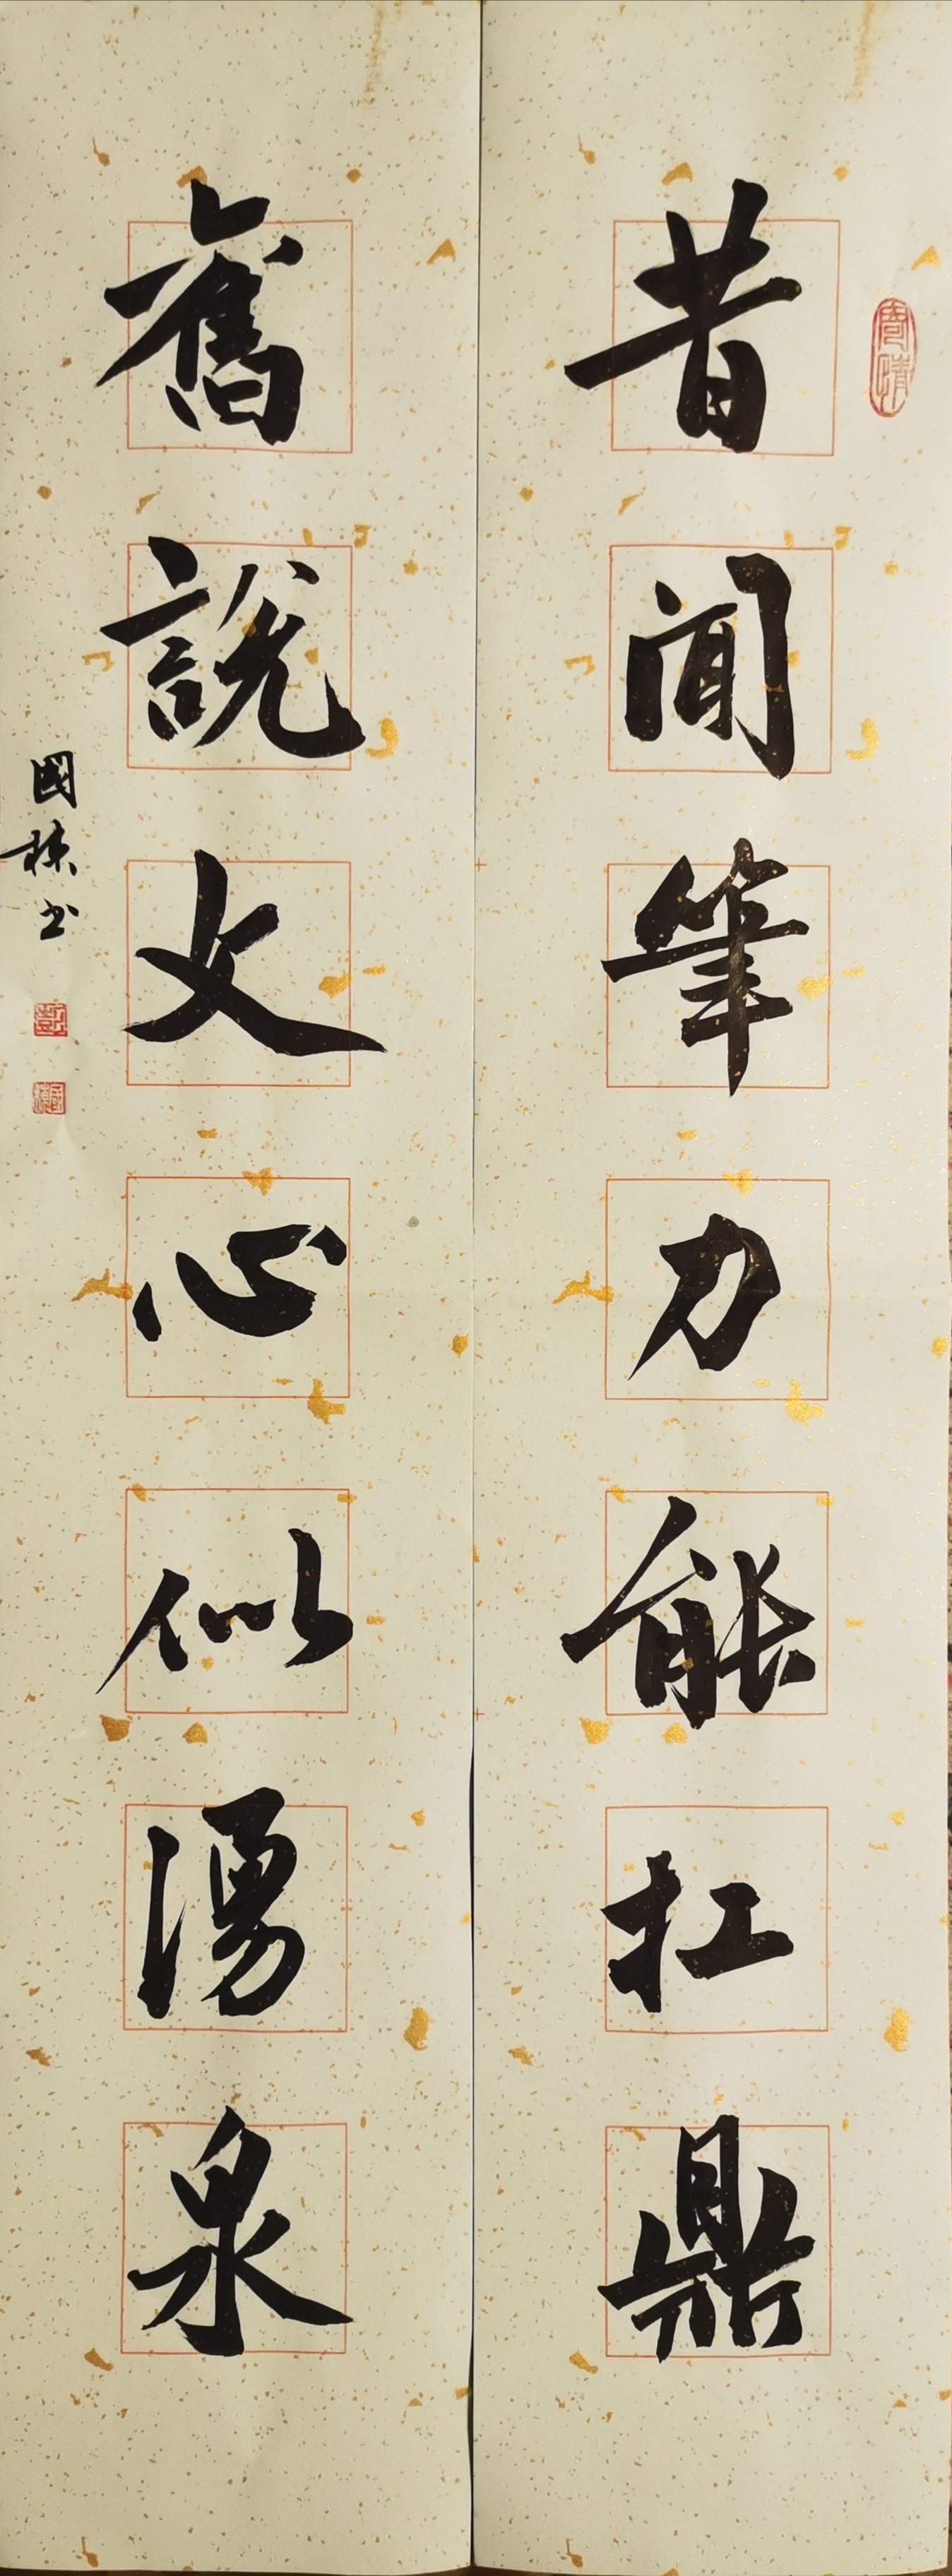 昔聞筆力能扛鼎
舊說文心似湧泉
國棟書